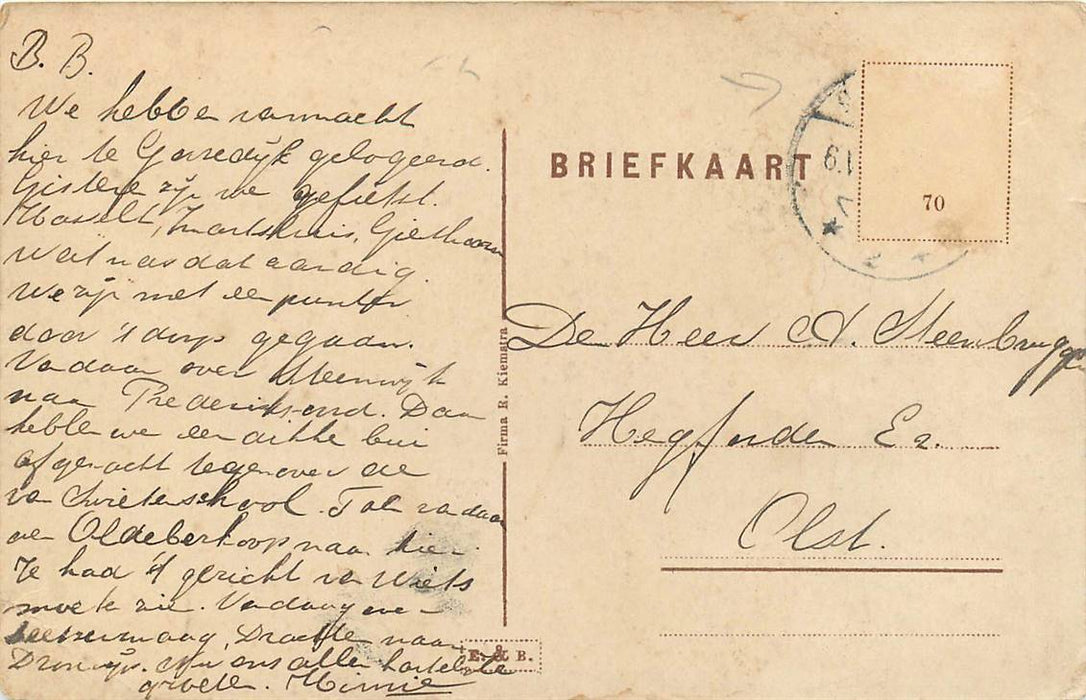 B. B.
We hebben vannacht
hier te Gorredijk gelogeerd.
Gisteren zijn we gefietst.
Hasselt, Zwartsluis, Giethoorn
Wat was dat aardig.
We zijn met een punter
door 't dorp gegaan.
Vandaar over Steenwijk
naar Frederiksoord. Daar
hebben we een dikke bui
afgewacht tegenover de
van Swietenschool. Toen vandaar
over Oldeberkoop naar hier.
Je had 't gezicht van Wiets
moeten zien. Vandaag over
Beetsterzwaag, Drachten naar
Dronrijp. Van ons allen hartelijke
groeten. Minnie
BRIEFKAART
70
De Heer A. Steenbruggen
Hegfonden Ez.
Olst.
Firma R. Kiemstra
E. & B.